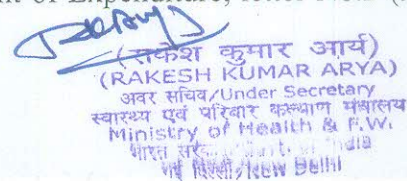 of Expenditure, letter No.
(राकेश कुमार आर्य)
(RAKESH KUMAR ARYA)
अवर सचिव/Under Secretary
स्वास्थ्य एवं परिवार कल्याण मंत्रालय
Ministry of Health & F.W.
भारत सरकार/Govt. of India
नई दिल्ली/New Delhi